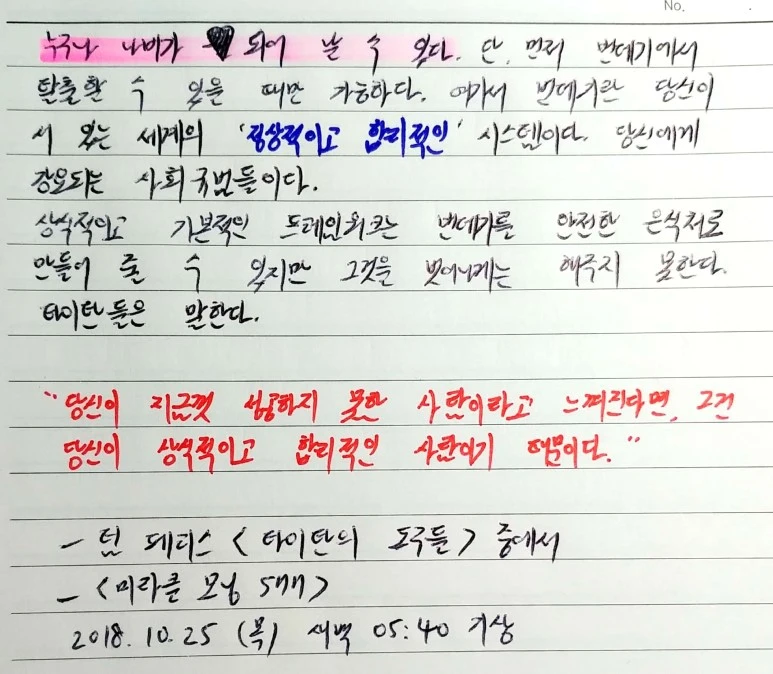 No.
누구나 나비가 되어 날 수 있다. 단, 먼저 번데기에서
탈출할 수 있을 때만 가능하다. 여기서 번데기란 당신이
서 있는 세계의 '정상적이고 합리적인' 시스템이다. 당신에게
강요되는 사회 규범들이다.
상식적이고 기본적인 프레임워크는 번데기를 안전한 은식처로
만들어 줄 수 있지만 그것을 벗어나게는 해주지 못한다.
타이탄들은 말한다.
"당신이 지금껏 성공하지 못한 사람이라고 느껴진다면, 그건
당신이 상식적이고 합리적인 사람이기 때문이다."
- 팀 페리스 <타이탄의 도구들> 중에서
- <미라클 모닝 5개> 
2018. 10. 25 (목) 새벽 05:40 기상